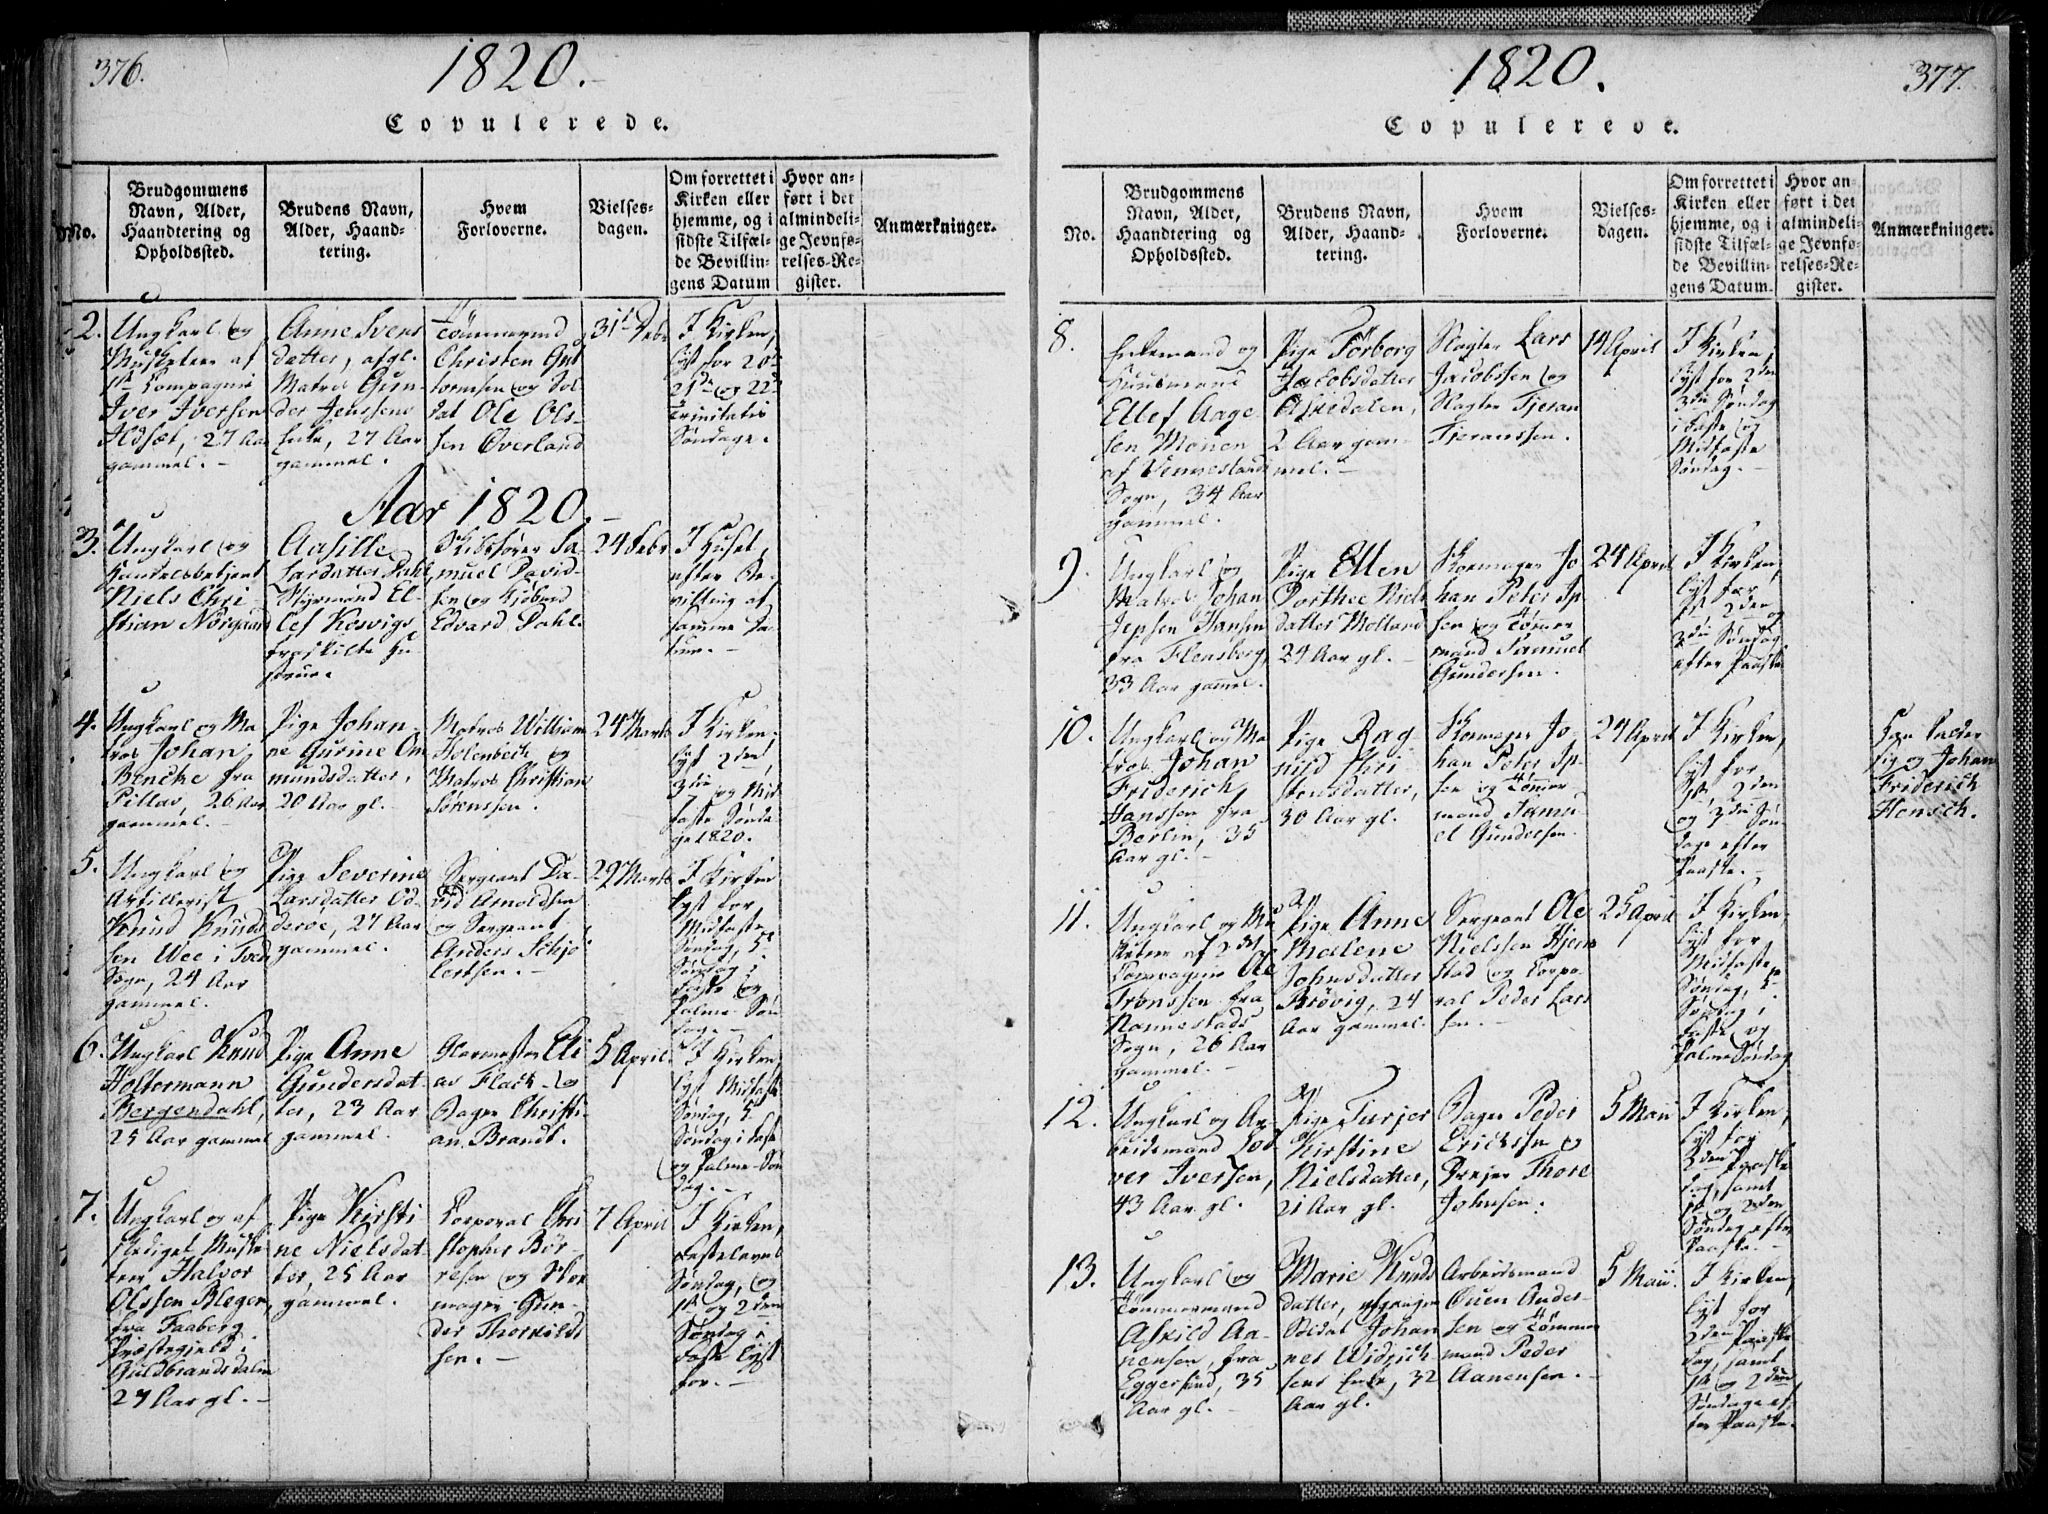 376.
1820.
Copulerede.
No.
Brudgommens
Navn, Alder,
Haandtering og
Opholdssted.
Brudens Navn,
Alder, Haand-
tering.
Hvem
Forloverne.
Vielses-
dagen.
Om forrettet i
Kirken eller
hjemme, og i
sidste Tilfæl-
de Bevillin-
gens Datum
Hvor an-
ført i det
almindeli-
ge Jevnfø-
relses-Re-
gister.
Anmærkninger.
2.
Ungkarl og
Musketeer af
1ste Compagnie
Iver Iversen
27 Aar
gammel.
Anne Svens
datter, afgl.
Matros Gun-
der Jenssens
Enke, 27 Aar
gammel.
Tömmermd
Christen Gut
tormsen og Sol
dat Ole Ols-
sen Överland
31te Febr
I Kirken,
lyst for 20de
21de og 22de
Trinitatis
Söndage.
Aar 1820.
3.
Ungkarl og
Handelsbetjent
Niels Chri-
stian Nörgaard
Aasille
Larsdatter Dahl,
Styrmand El-
lef Kosvigs
fraskilte Hu
strue.
Skibsförer Sa-
muel David-
sen og Kjöbmd
Edvard Dahl.
24 Febr
I Huset,
efter Be-
villing af
samme Da-
tum.
4.
Ungkarl og Ma
tros Johan
Bencke fra
Pillau, 26 Aar
gammel.
Pige Johan-
ne Gurine Om
mundsdatter,
20 Aar gl.
Matros William
Holenbeck og
Matros Christian
Sörenssen.
24 Marts
I Kirken,
lyst 2den,
3die og Mid
faste Sönda
ge 1820.
5.
Ungkarl og
Artillerist
Knud Knuds
sen Wee i Tved
Sogn, 24 Aar
gammel.
Pige Severine
Larsdatter Od-
deröe, 27 Aar
gammel.
Sergeant Da-
vid Arnoldsen
og Sergeant
Anders Schjö
lertsen.
29 Marts
I Kirken
lyst for
Midfaste
Söndag, 5te
Söndag i
Faste og
Palme-Sön
dag.
6.
Ungkarl Knud
Holtermann
Bergendahl,
25 Aar gammel
Pige Anne
Gundersdat-
ter, 23 Aar
gammel.
Glarmester Eli
as Flack og
Bager Christi-
an Brandt.
5 April.
I Kirken
lyst Midfaste
Söndag, 5te
Söndag i Faste
og Palme-Sön
dag.
7.
Ungkarl og af
skediget Muske
teer Halvor
Olssen Bleger,
fra Faaberg
Præstegjeld i
Guldbrandsdalen
27 Aar gl.
Pige Kirsti
ne Nielsdat-
ter, 25 Aar
gammel.
Corporal Chri
stopher Bör-
resen og Skoe
mager Gun-
der Thorkilds
sen.
7 April
I Kirken,
Fastelavns
Söndag, og
1ste og 2den
Söndag i
Faste lyst
for.
1820.
377.
Copulerede.
No.
Brudgommens
Navn, Alder,
Haandtering og
Opholdssted.
Brudens Navn,
Alder, Haand-
tering.
Hvem
Forloverne.
Vielses-
dagen.
Om forrettet i
Kirken eller
hjemme, og i
sidste Tilfæl-
de Bevillin-
gens Datum.
Hvor an-
ført i det
almindeli-
ge Jevnfø-
relses-Re-
gister.
Anmærkninger.
8.
Enkemand og
Huusmand
Ellef Aage
sen Monen
af Vennesland
Sogn, 34 Aar
gammel.
Pige Torborg
Jacobsdatter
2 Aar gam-
mel.
Slagter Lars
Jacobssen og
Slagter Tjeran
Tjeranssen.
14 April
I Kirken,
lyst for 2den
3die Söndag
i Faste og
Midfaste
Söndag.
9.
Ungkarl og
Matros Johan
Jepsen Hansen
fra Flensborg,
33 Aar gammel.
Pige Ellen
Dorthee Niels
datter Molland
24 Aar gl.
Skoemager Jo
han Peter Ip-
sen og Tömmer
mand Samuel
Gundersen.
24 April
I Kirken,
lyst for
1ste, 2den og
3die Söndag
efter Paaske
10.
Ungkarl og Ma
tros Johan
Friderich
Hanssen fra
Berlin, 35
Aar gl.
Pige Rag-
nild Chri
stensdatter,
30 Aar gl.
Skoemager Jo-
han Peter Ip-
sen og Tömmer
mand Samu-
el Gundersen.
24 April
I Kirken,
lyst for
1ste, 2den
og 3die Sön-
dage efter
Paaske.
Han kalder
sig og Johan
Friderich
Hensch.
11.
Ungkarl og Mu
sketeer af 2det
Compagnie Ole
Tronssen fra
Nannestads
Sogn, 26 Aar
gammel.
Pige Anne
Malene
Johnsdatter
Brövig, 24
Aar gammel.
Sergeant Ole
Nielssen Hjem
stad og Corpo-
ral Peder Lars
sen.
25 April
I Kirken,
lyst for
Midfaste
Söndag, 5te
Söndag i
Faste og
Palme Söndag
12.
Ungkarl og Ar-
beidsmand Lod
ver Iversen,
43 Aar gl.
Pige Turjer
Kirstine
Nielsdatter,
21 Aar gl.
Bager Peder
Ericksen og
Dreyer Thore
Johnsen.
5 Maii
I Kirken,
lyst for
2den Paaske
dag, samt
1ste og 2den
Söndag efter
Paaske.
13.
Ungkarl og
Tömmermand
Askild Aa-
nensen, fra
Eggersund, 35
Aar gl.
Marie Knuds
datter, afgangen
Soldat Johan
nes Widrich
sens Enke, 32
Aar gl.
Arbeidsmand
Ouen Ander-
sen og Tömmer
mand Peder
Aanensen.
5 Maii.
I Kirken,
lyst for
2den Paaske
dag, samt
1ste og 2den
Söndage ef-
ter Paaske.